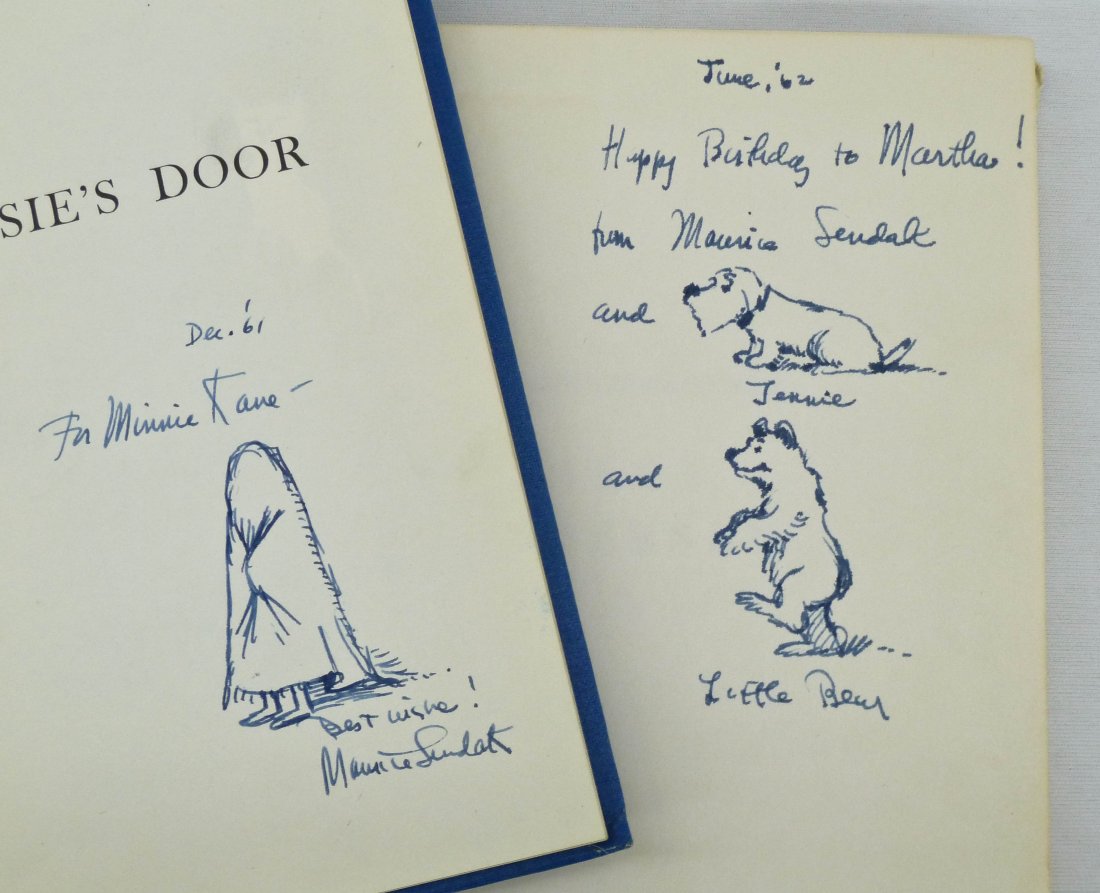 SIE'S DOOR
Dec. '61
For Minnie Kane —
Best wishes!
Maurice Sendak
June, '62
Happy Birthday to Martha!
from Maurice Sendak
and
Jennie
and
Little Bear